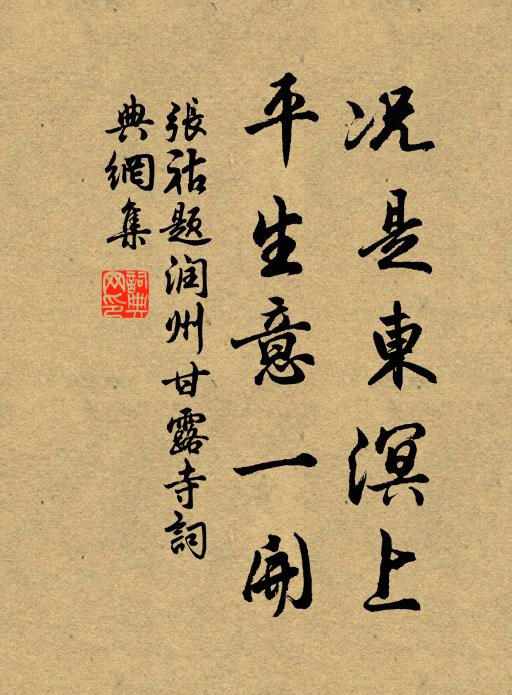 况是東溟上
平生意一開
張祜題润州甘露寺詞
典網集
詞典网印